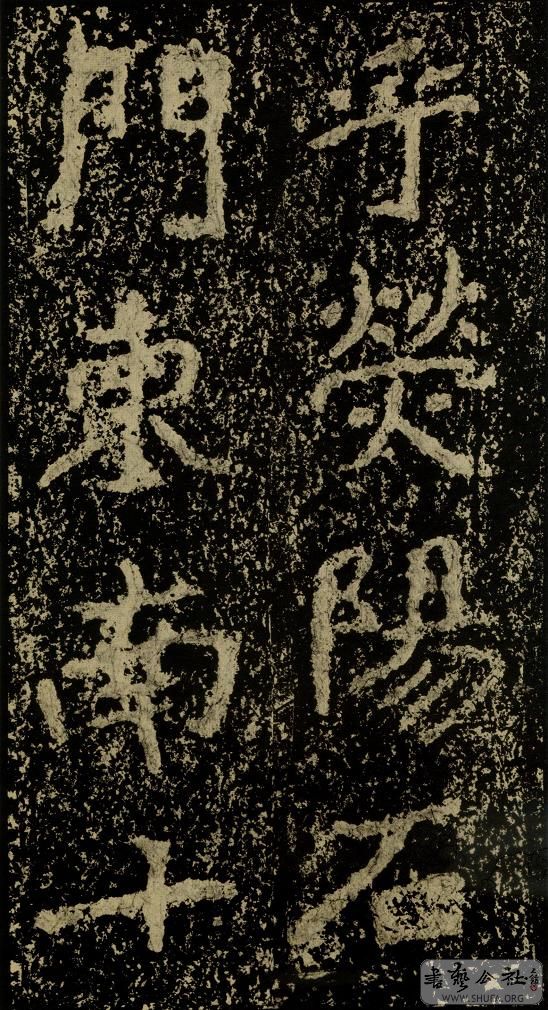 乎熒陽石
門東南十
書藝公社
WWW.SHUFA.ORG